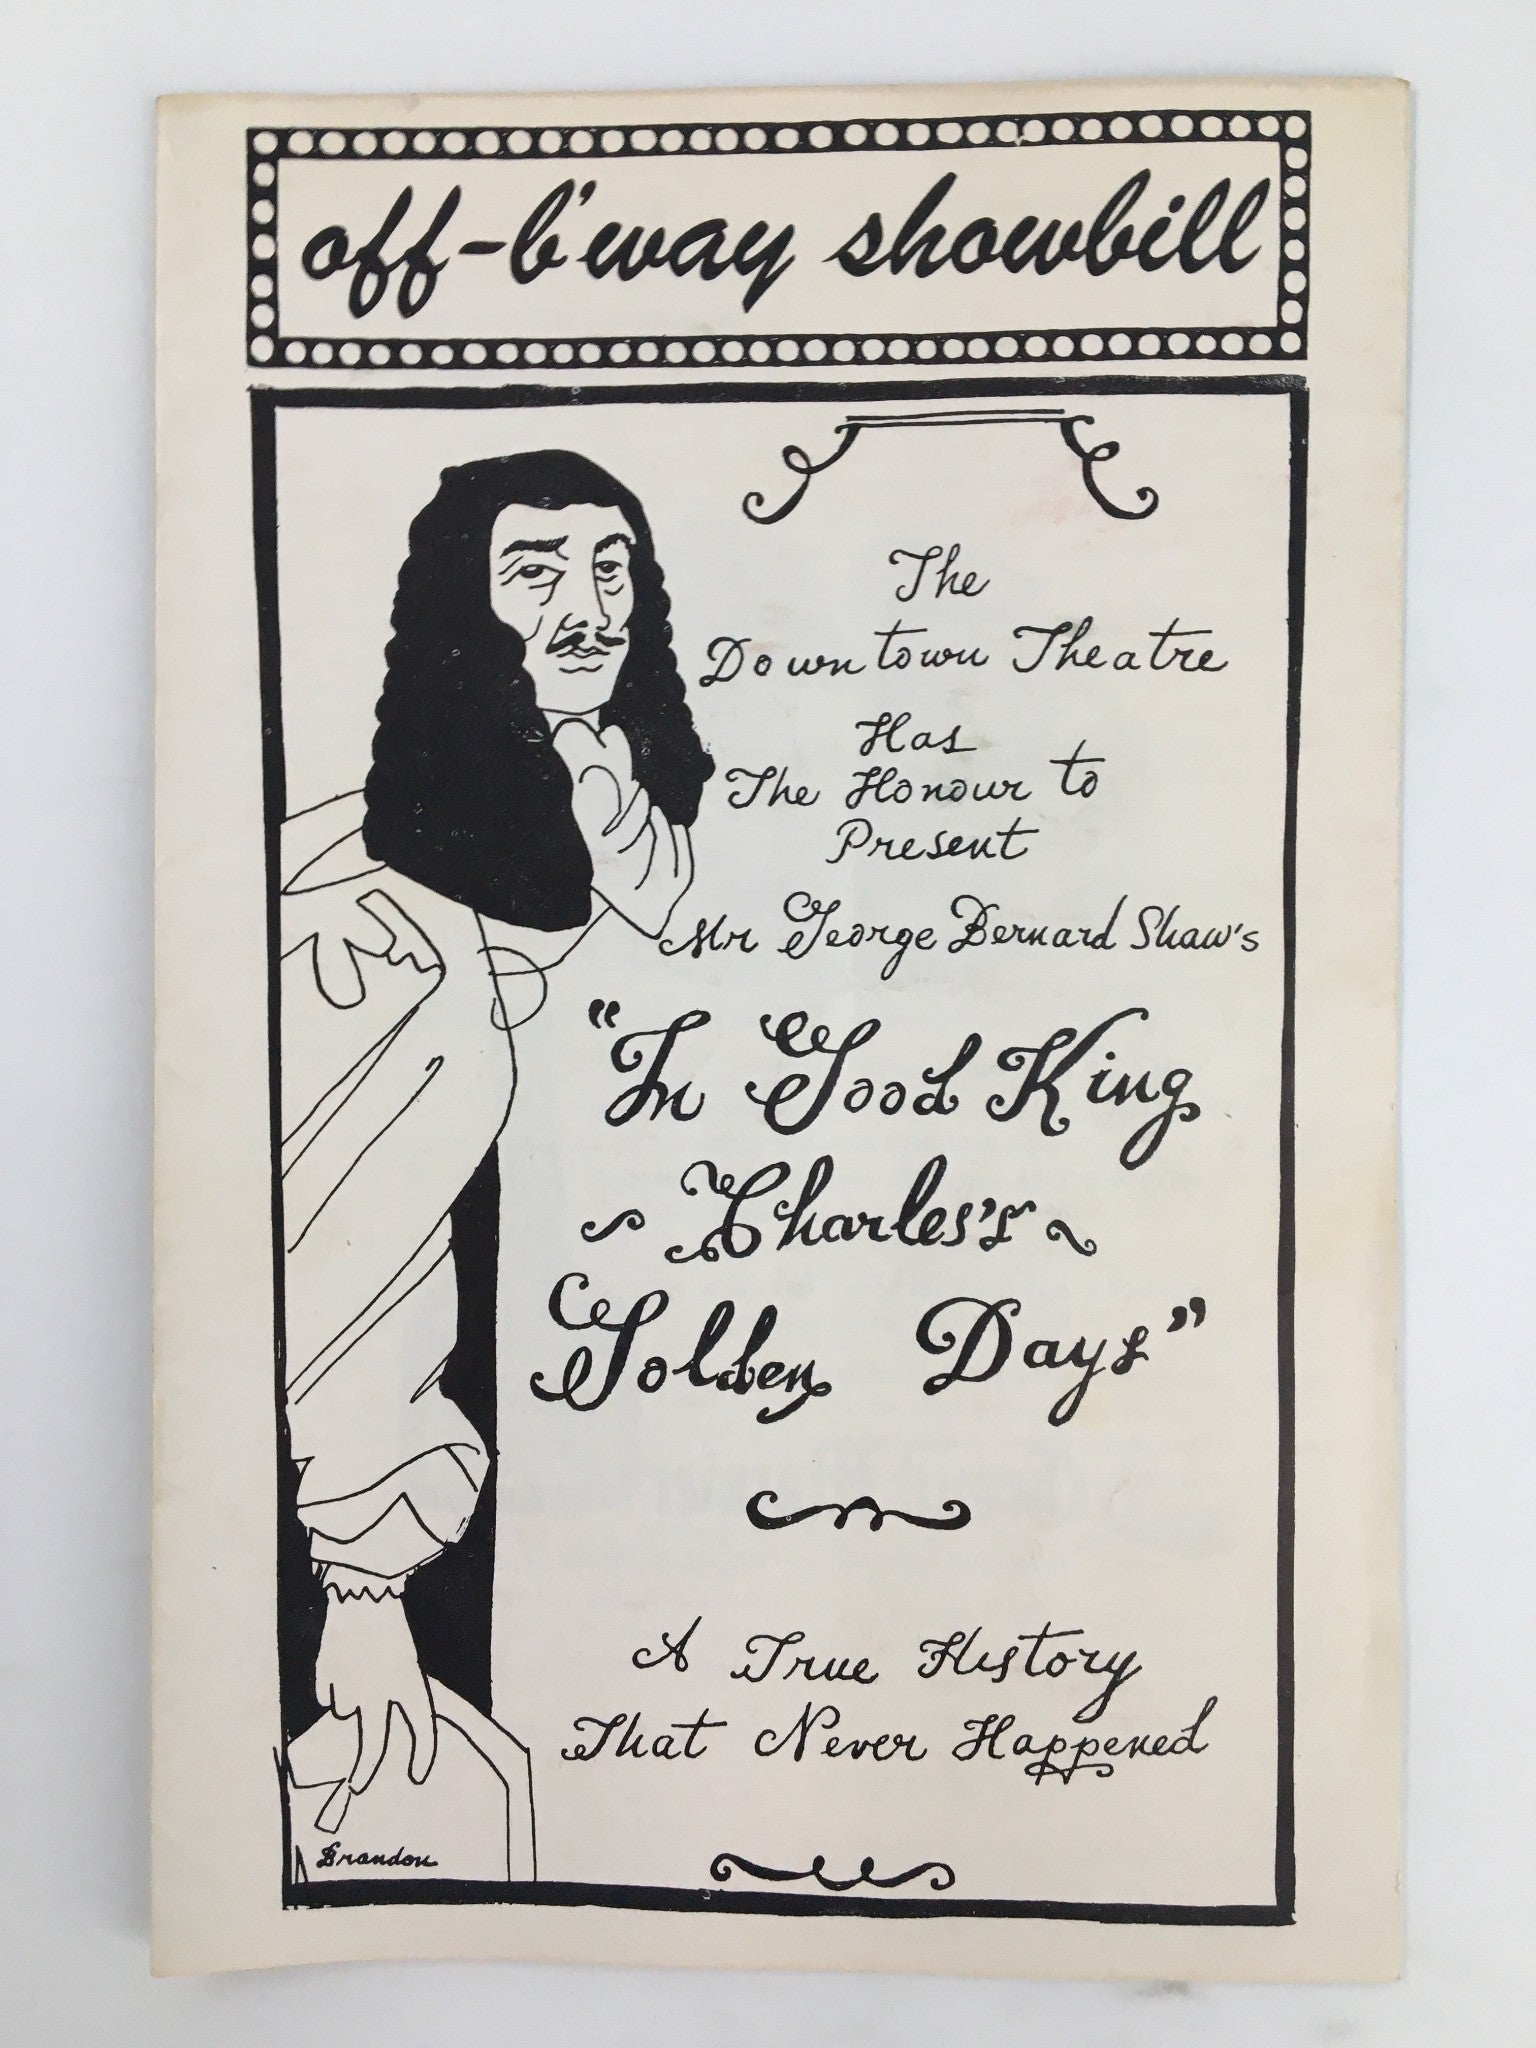 off-b'way showbill
The
Downtown Theatre
Has
The Honour to
Present
Mr George Bernard Shaw's
"In Good King
~ Charles's ~
Golden Days"
A True History
That Never Happened
Brandon